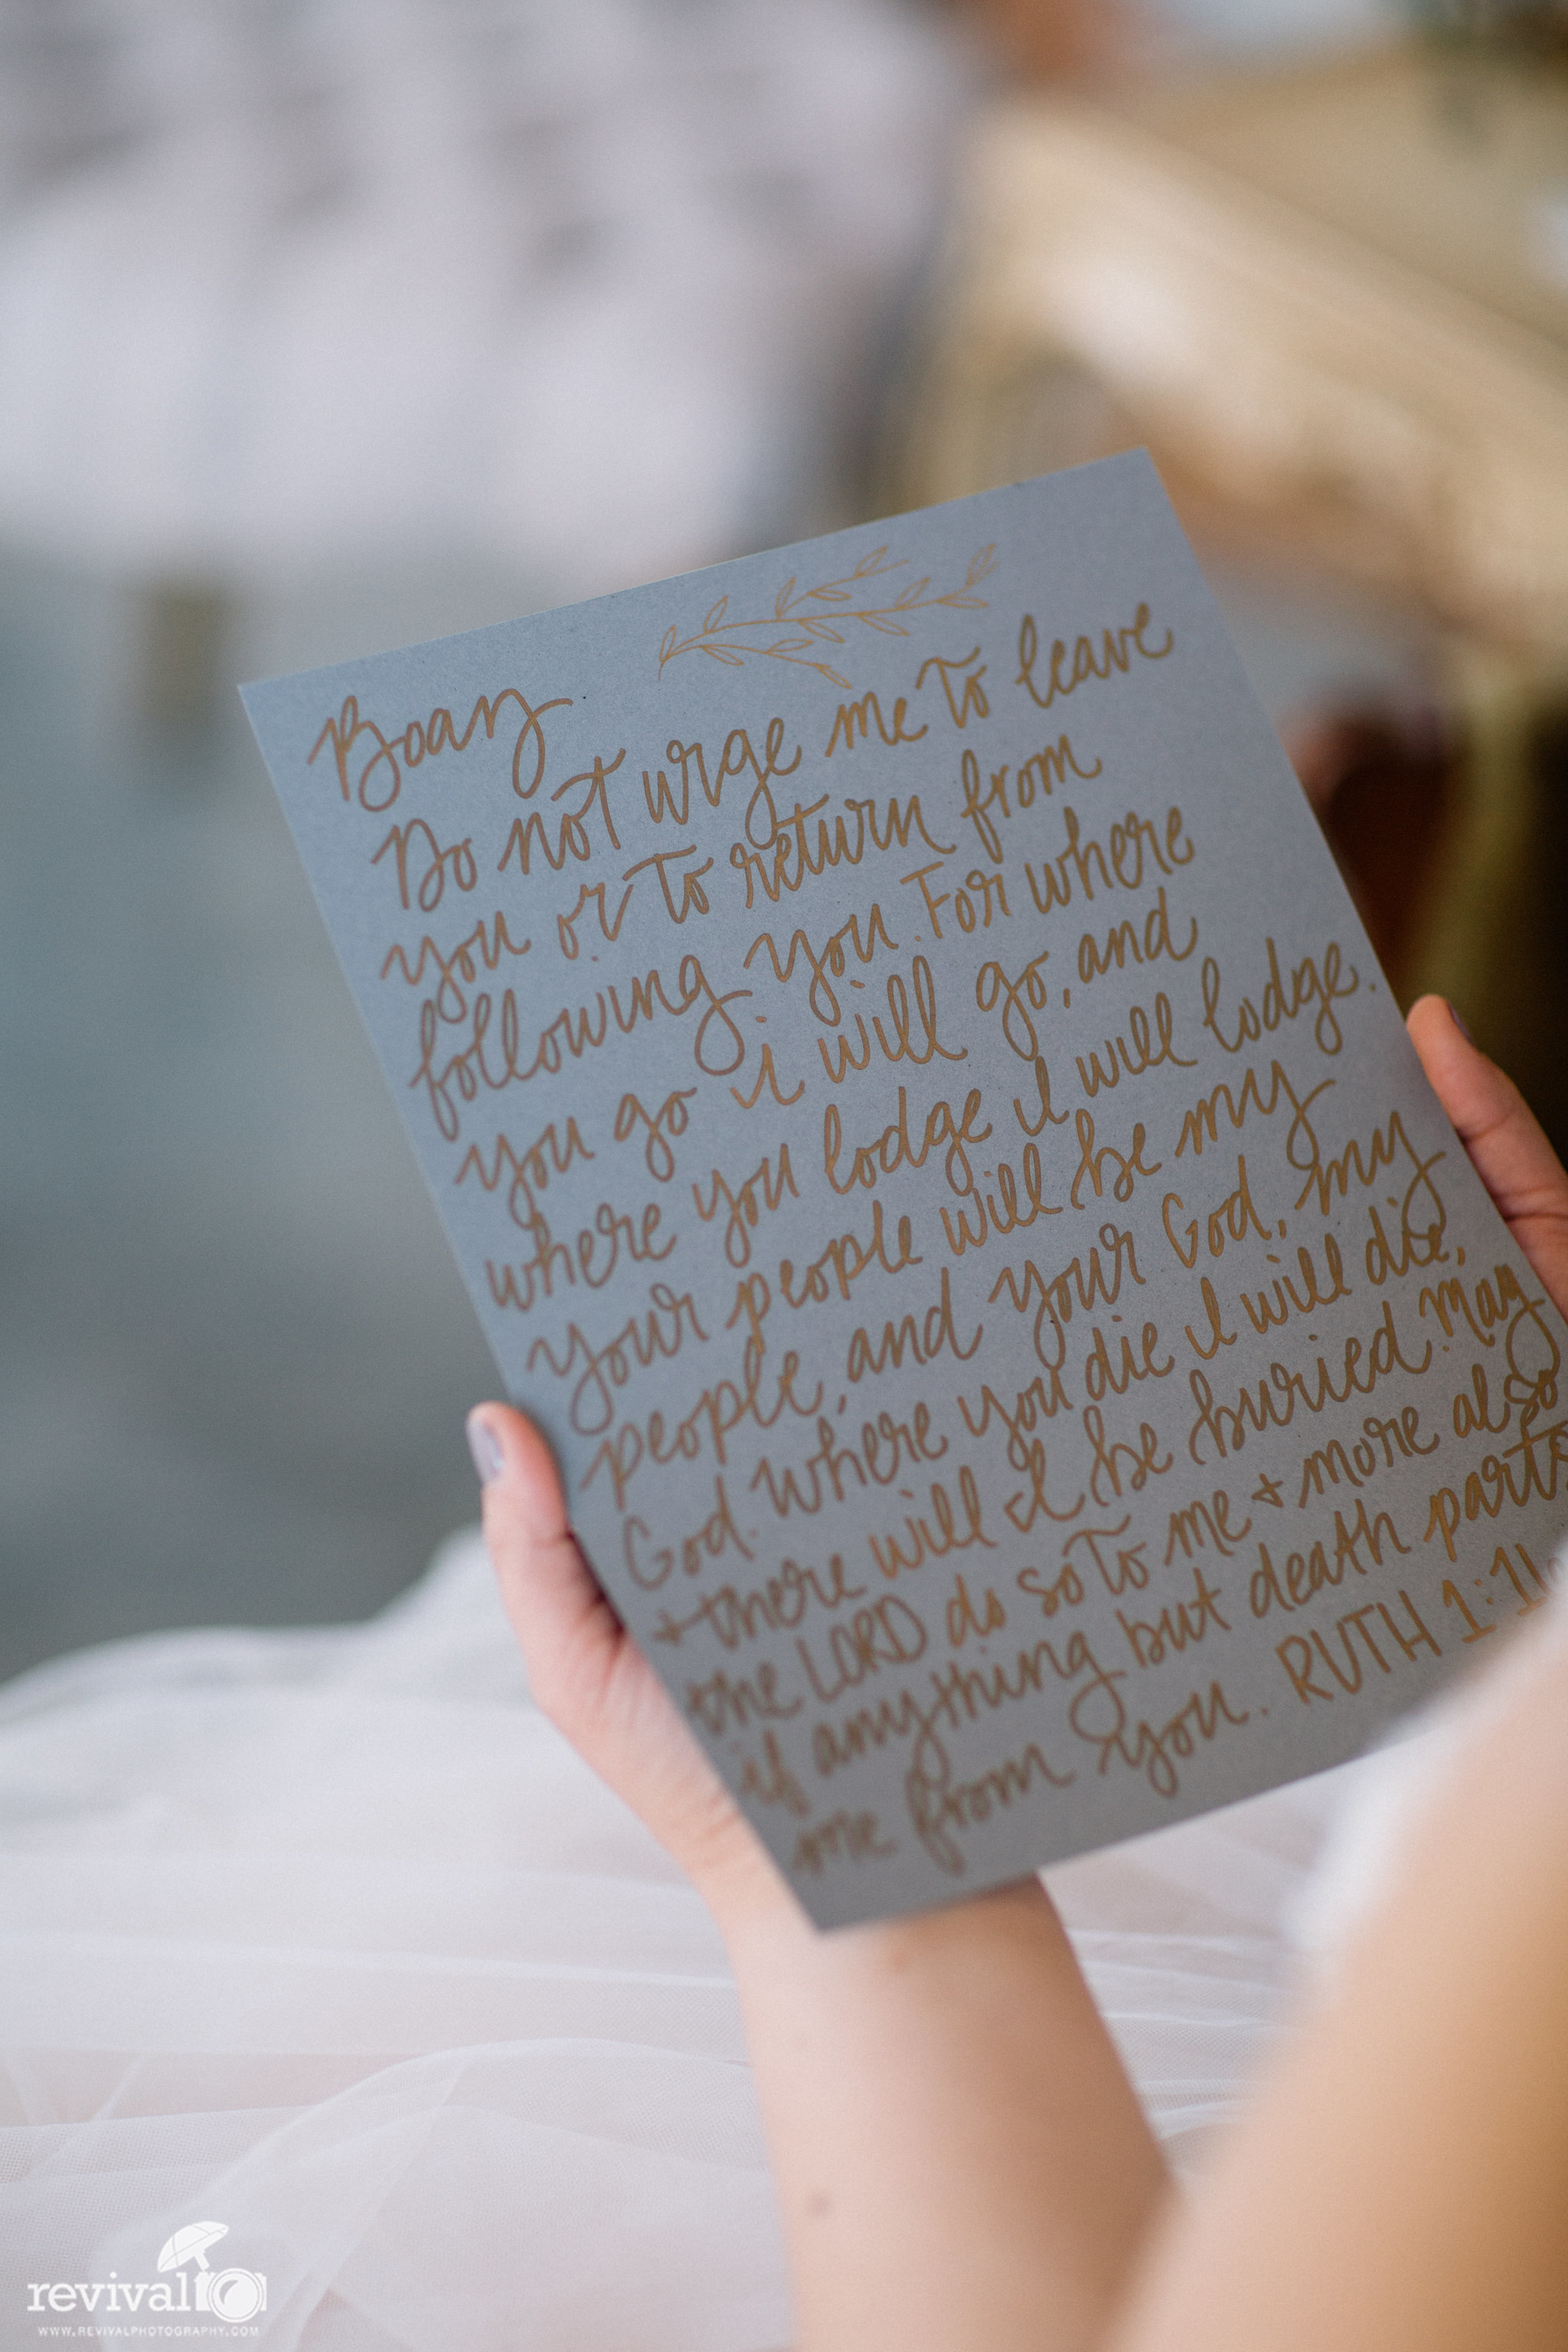 Boaz
Do not urge me to leave
you or to return from
following you. For where
you go i will go, and
where you lodge I will lodge.
your people will be my
people, and your God, my
God. where you die I will die,
+ there will I be buried. May
the LORD do so to me + more also
if anything but death parts
me from you. RUTH 1:1
revival
WWW.REVIVALPHOTOGRAPHY.COM